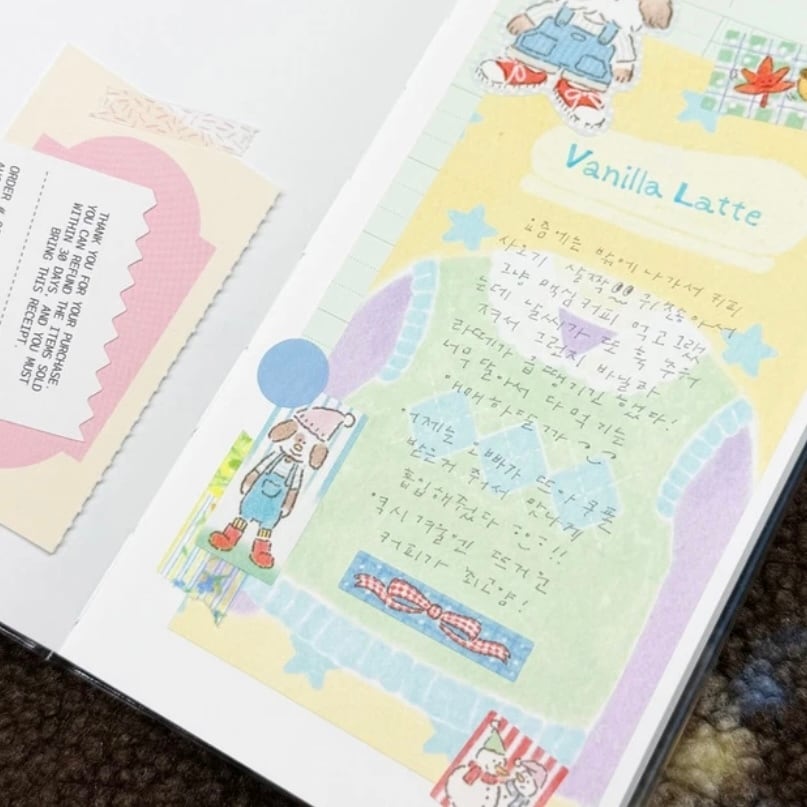 ORDER #
THANK YOU FOR YOUR PURCHASE.
YOU CAN REFUND THE ITEMS SOLD
WITHIN 30 DAYS.
BRING THIS, AND YOU MUST
RECEIPT.
Vanilla Latte
요즘에는 밖에 나가서 커피
사오기 살짝 귀찮아서
그냥 맥심커피 먹고 그랬
는데 날씨가 또 훅 추워
져서 그런지 바닐라
라떼가 급 땡기긴 했었다!
너무 달아서 다 먹기는
애매하드라
어제는 오빠가 뜨아 쿠폰
받은거 줘서 맛나게
흡입해줬다 !!
역시 겨울엔 뜨거운
커피가 최고양!